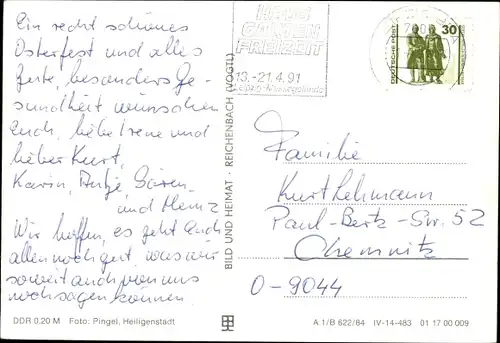 Ein recht schönes
Osterfest und alles
Gute, besonders Ge-
sundheit wünschen
Euch, liebe Irene und
lieber Kurt,
Karin, Antje, Sören
und Heinz
Wir hoffen, es geht Euch
allen noch gut, was wir
soweit auch von uns
noch sagen können.
DDR 0,20 M Foto: Pingel, Heiligenstadt
BILD UND HEIMAT · REICHENBACH (VOGTL)
HAUS
GARTEN
FREIZEIT
13.-21.4.91
Leipzig-Messegelände
DEUTSCHE POST
30
Familie
Kurt Lehmann
Paul-Bertz-Str. 52
Chemnitz
O-9044
A 1/B 622/84 IV-14-483 01 17 00 009